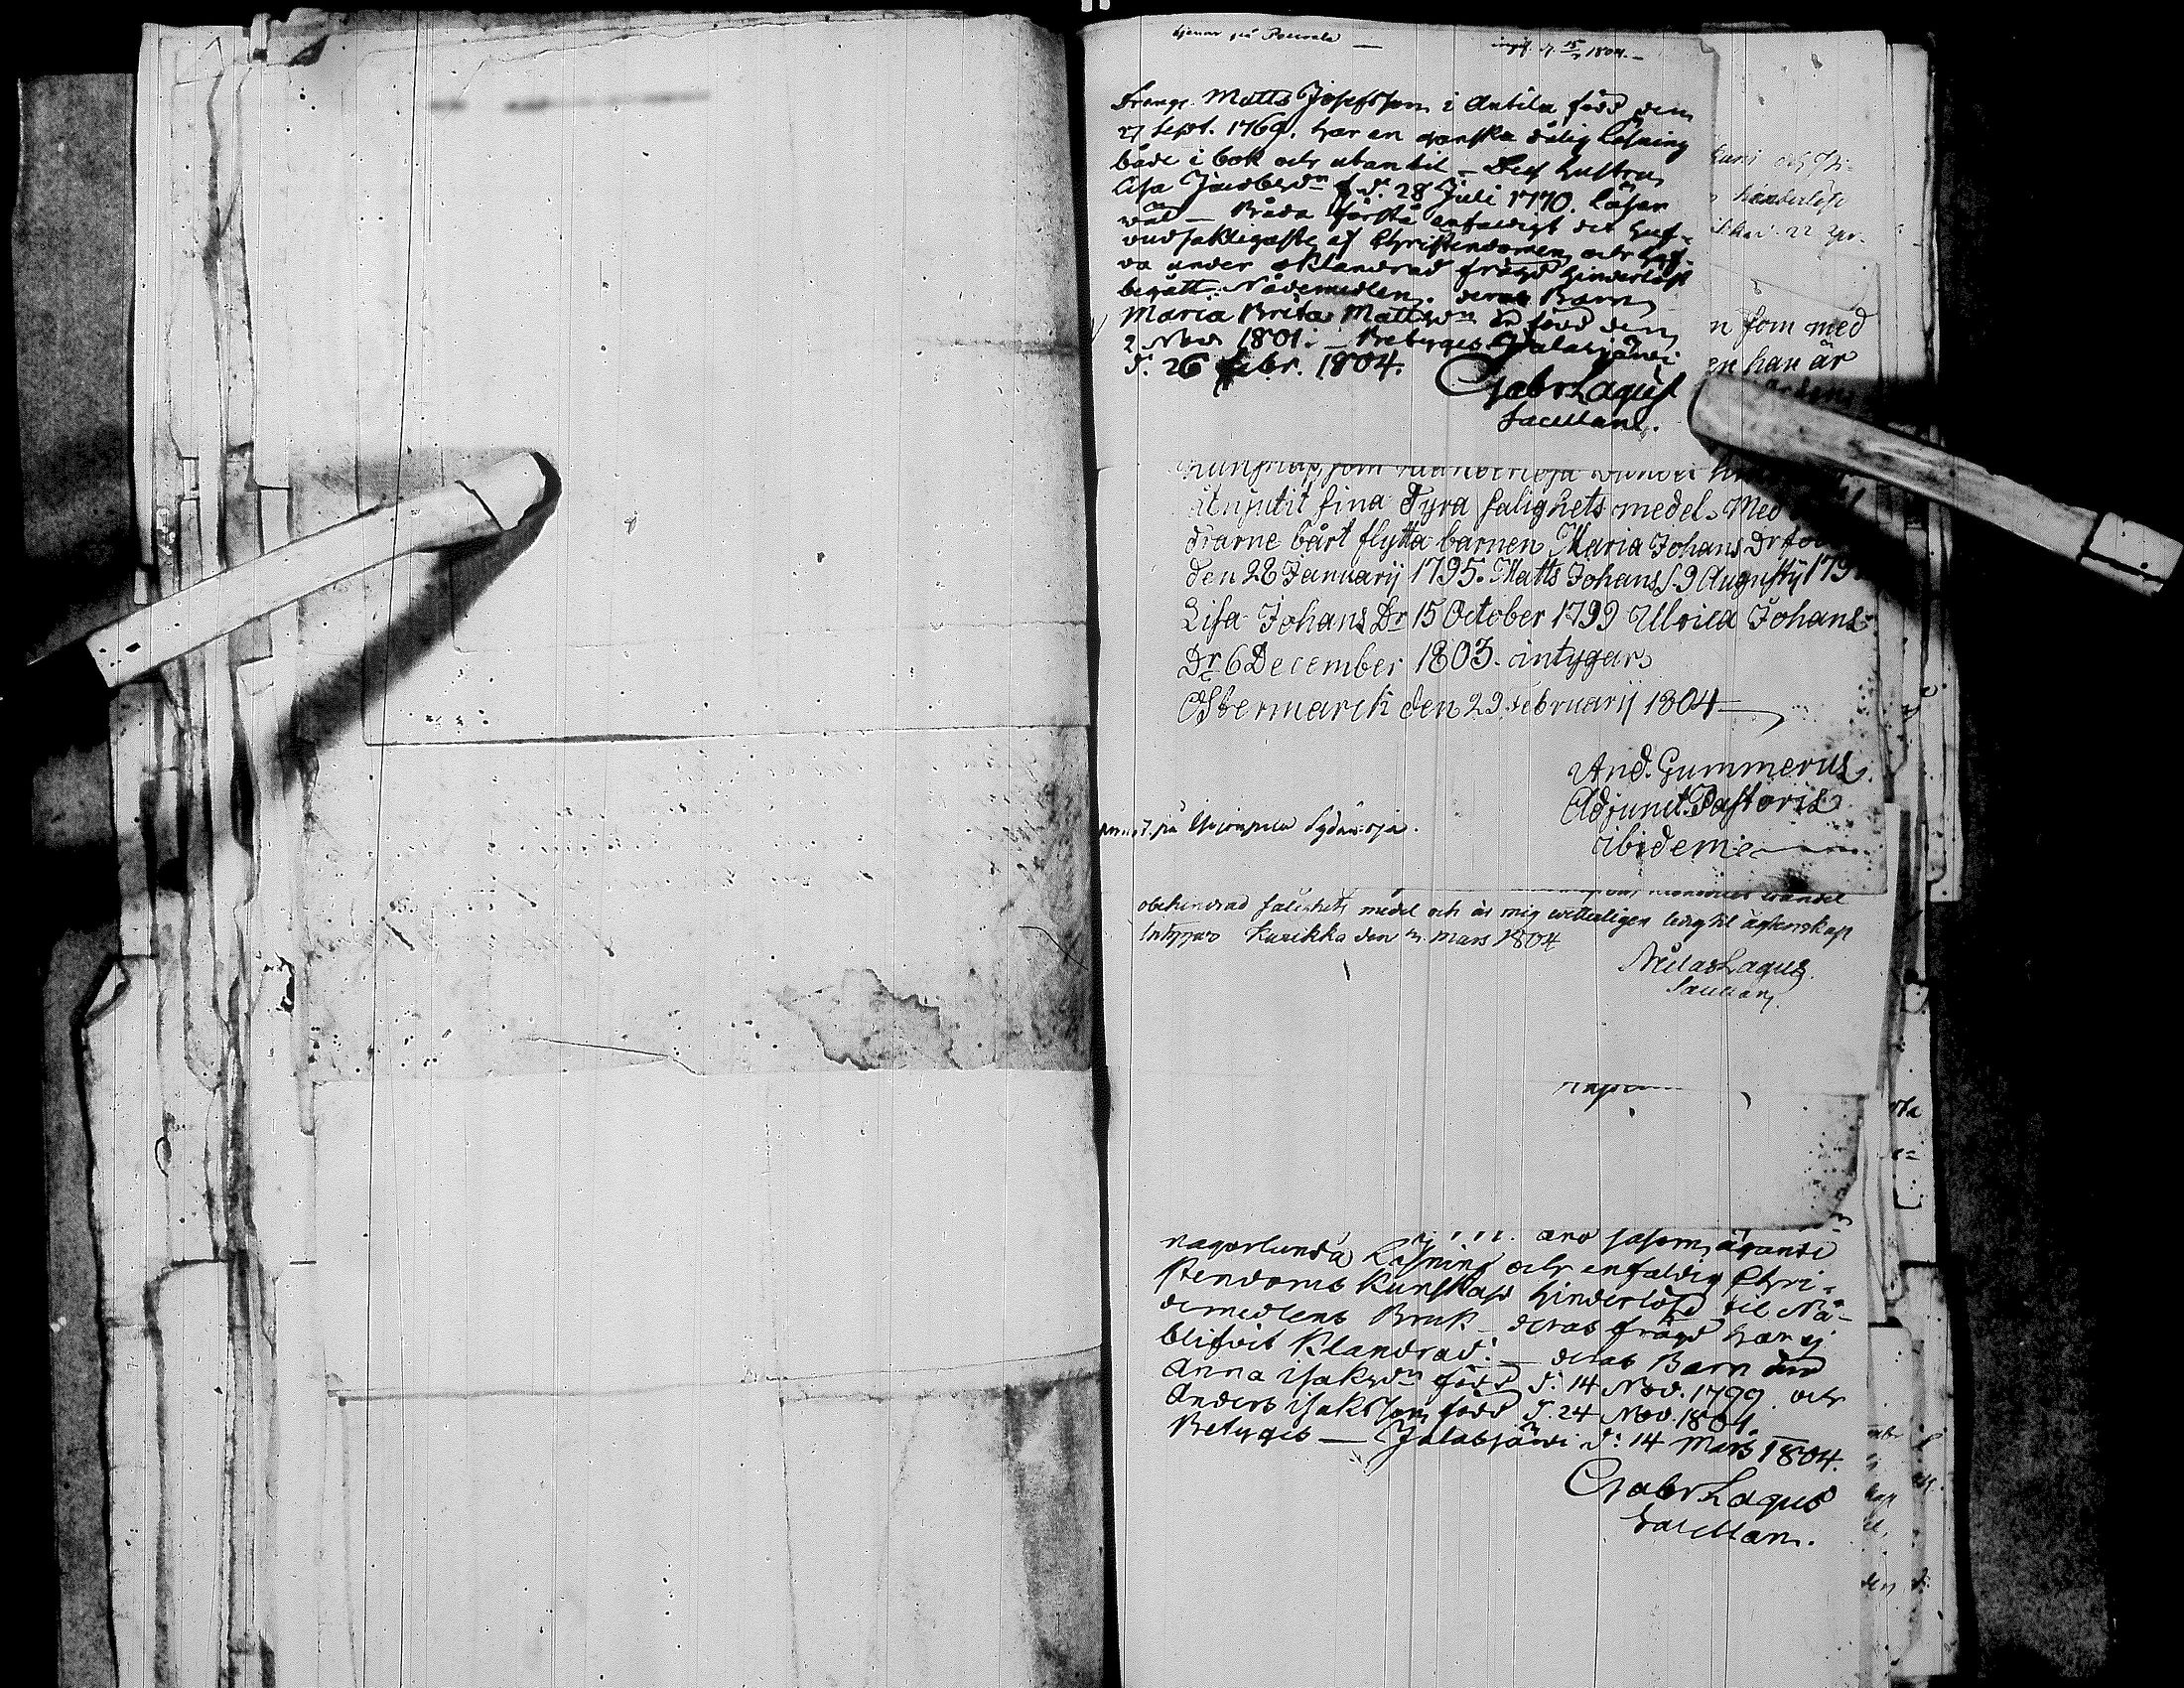 ingif. d. 15/4 1804.
Drängn. Matts Josefsson i Anttila född den
27 Sept. 1769. har en ganska dålig läsning
både i bok och utantil – Dess hustru
Lisa Jacobsdn f. d. 28 Juli 1770. läser
väl – Båda förstå enfaldigt det huf-
vudsakligaste af Christendomen och haf-
va under oklandrad frägd hinderlöst
begått Nådemedlen. deras Barn
Maria Brita Mattsdn är född den
2 Nov. 1801. – Betyges Jalasjärvi
d. 26 Febr. 1804.
Gabr Lagus
Sacellan.
kans och
hinderlöst
n som med
en han är
åtnjutit sina dyra salighets medel. Med
drarne bårt flytta barnen Maria Johans Dr född
den 28 Januarij 1795. Matts Johans S. 9 Augustij 179
Lisa Johans Dr 15 October 1799 Ulrica Johans
Dr 6 December 1803. intygar
Östermarck den 29 Februarij 1804
And. Gummerus
Adjunct. Pastoris
ibidem
wandel
obehindrad salighets medel och är mig vetterligen ledig til ägtenskap
Intygar Kurikka den mars 1804
Niclas Lagus
Sacellan
äro såsom ägande
någorlunda Läsning och enfaldig Chri-
stendoms Kunskap hinderlöse til Nå-
demedlens Bruk – deras frägd har ej
blifvit Klandrad. – deras Barn äro
Anna isaksdn född d. 14 Nov. 1799. och
Anders isaksson född d. 24 Nov. 1801.
Betyges – Jalasjärvi d. 14 Mars 1804.
Gabr Lagus
Sacellan.